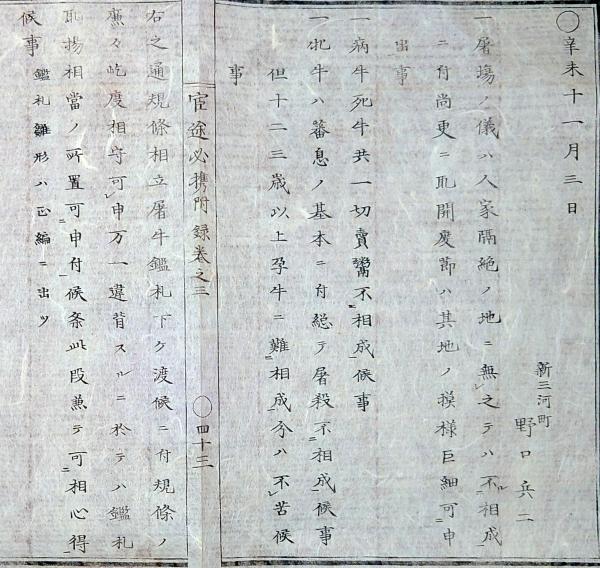 〇辛未十一月三日
新三河町
野口兵二
一屠場ノ儀ハ人家隔絶ノ地ニ無之テハ不相成
ニ付尚更ニ取開度節ハ其地ノ摸様巨細可申
出事
一病牛死牛共一切賣鬻不相成候事
一牝牛ハ蕃息ノ基本ニ付総テ屠殺不相成候事
但十二三歳以上孕牛ニ難相成分ハ不苦候
事
宦途必携附録巻之三
〇四十三
右之通規條相立屠牛鑑札下ケ渡候ニ付規條ノ
廉々屹度相守可申万一違背スルニ於テハ鑑札
取揚相當ノ所置可申付候条此段兼テ可相心得
候事
鑑札雛形ハ正編ニ出ツ